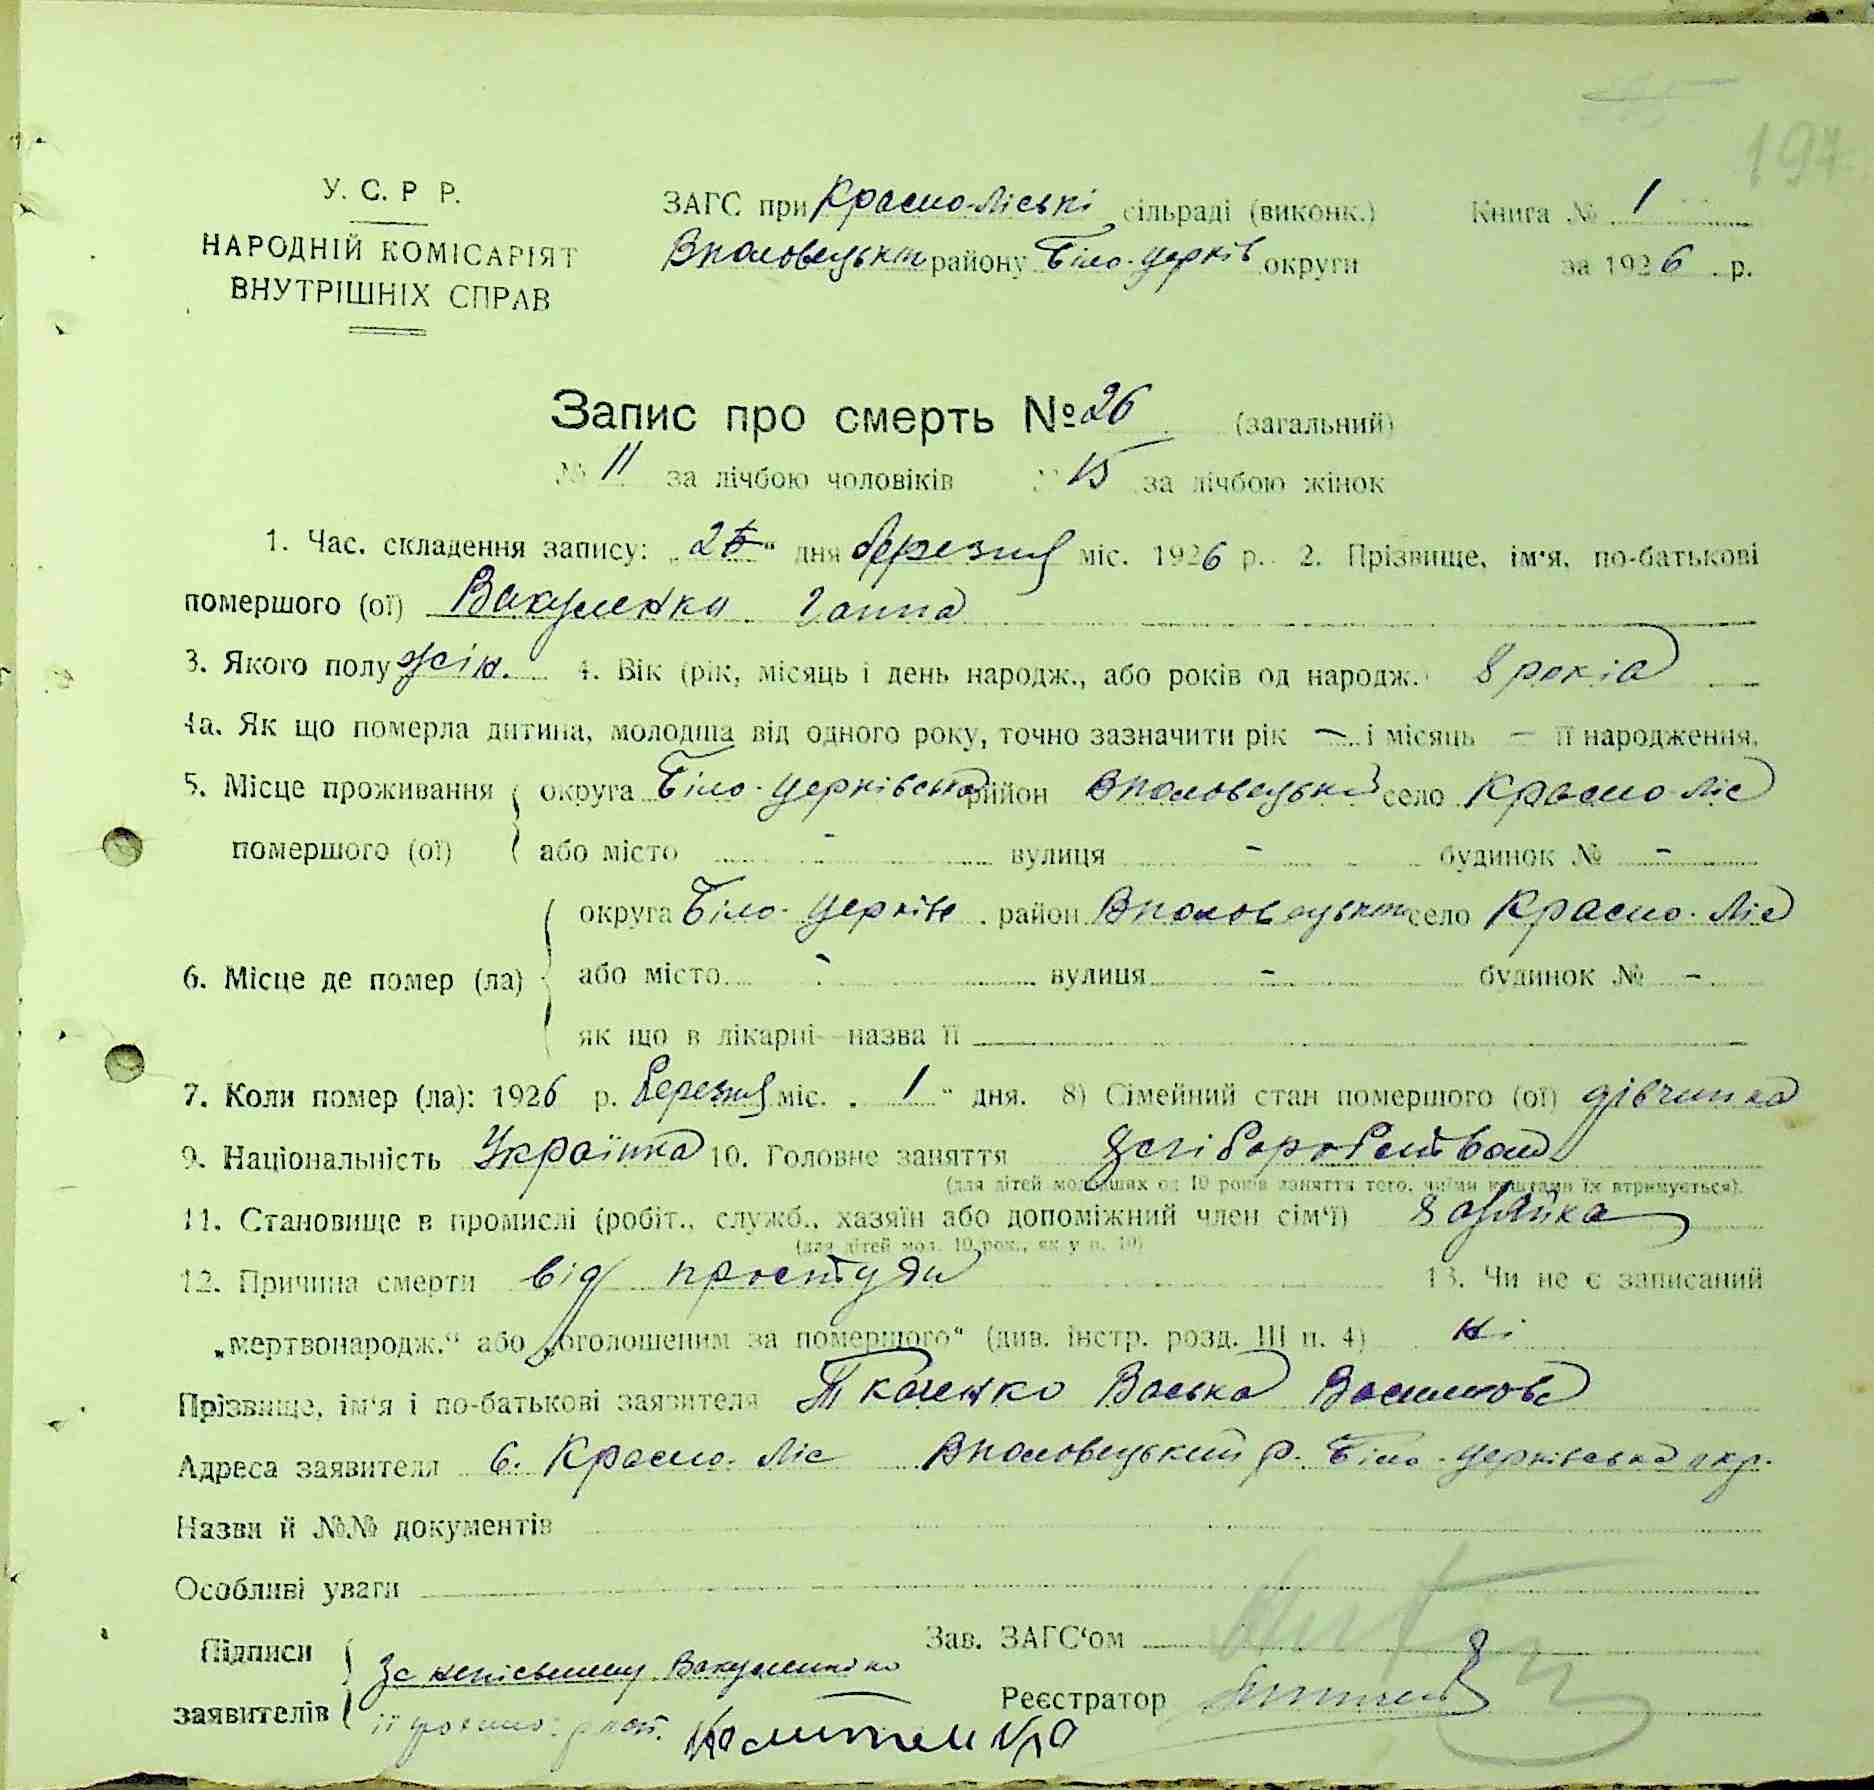 197
У. С. Р Р.
НАРОДНІЙ КОМІСАРІЯТ
ВНУТРІШНІХ СПРАВ
ЗАГС при Красно-Ліські сільраді (виконк.) Книга № 1
Вполовецьк району Біло-Церків округи за 1926 р.
Запис про смерть № 26 (загальний)
№ 11 за лічбою чоловіків № 15 за лічбою жінок
1. Час. складення запису: „ “ дня березня міс. 1926 р. 2. Прізвище, ім'я, по-батькові
помершого (ої) Вакуленко Ганна
3. Якого полу жін. 4. Вік (рік, місяць і день народж., або років од народж.) 8 років
4а. Як що померла дитина, молодша від одного року, точно зазначити рік — і місяць — її народження.
5. Місце проживання округа Біло-Церківська район Вполовецький село Красно-Ліс
помершого (ої) або місто - вулиця - будинок № -
округа Біло-Церків. район Вполовецьк село Красно-Ліс
6. Місце де помер (ла) або місто - вулиця - будинок № -
як що в лікарні—назва її
7. Коли помер (ла): 1926 р. Березня міс. „ 1 “ дня. 8) Сімейний стан помершого (ої) дівчинка
9. Національність Українка 10. Головне заняття
(для дітей молодших од 10 років заняття того, чиїми коштами їх втримується).
11. Становище в промислі (робіт., служб., хазяїн або допоміжний член сім'ї)
(для дітей мол. 10 рок., як у п. 10)
12. Причина смерти від простуди 13. Чи не є записаний
„мертвонародж.“ або „оголошеним за помершого“ (див. інстр. розд. III п. 4) ні
Прізвище, ім'я і по-батькові заявителя Ткаченко Васька
Адреса заявителя с. Красно-Ліс Вполовецький р. Біло-Церківська окр.
Назви й №№ документів
Особливі уваги
Підписи Зав. ЗАГС'ом
За неписьменну Вакуленко
заявителів Реєстратор